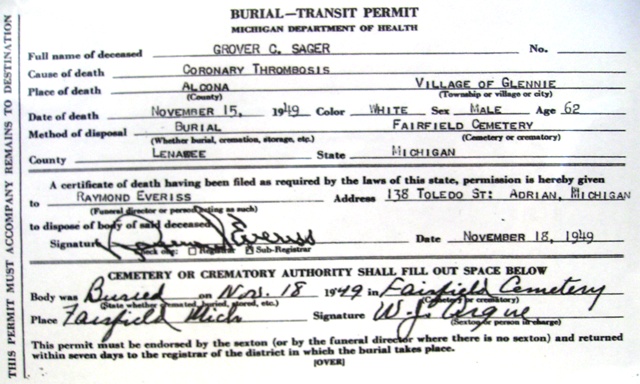 BURIAL—TRANSIT PERMIT
MICHIGAN DEPARTMENT OF HEALTH
Full name of deceased GROVER C. SAGER No.
Cause of death CORONARY THROMBOSIS
Place of death ALCONA VILLAGE OF GLENNIE
(County) (Township or village or city)
Date of death NOVEMBER 15, 1949 Color WHITE Sex MALE Age 62
Method of disposal BURIAL FAIRFIELD CEMETERY
(Whether burial, cremation, storage, etc.) (Cemetery or crematory)
County LENAWEE State MICHIGAN
A certificate of death having been filed as required by the laws of this state, permission is hereby given
to RAYMOND EVERISS Address 138 TOLEDO ST: ADRIAN, MICHIGAN
(Funeral director or person acting as such)
to dispose of body of said deceased
Signature Date NOVEMBER 18, 1949
Registrar Sub-Registrar
CEMETERY OR CREMATORY AUTHORITY SHALL FILL OUT SPACE BELOW
Body was Buried on Nov. 18 1949 in Fairfield Cemetery
(State whether cremated, buried, stored, etc.) (Cemetery or crematory)
Place Fairfield Mich Signature W. J.
(Sexton or person in charge)
This permit must be endorsed by the sexton (or by the funeral director where there is no sexton) and returned
within seven days to the registrar of the district in which the burial takes place.
[OVER]
THIS PERMIT MUST ACCOMPANY REMAINS TO DESTINATION